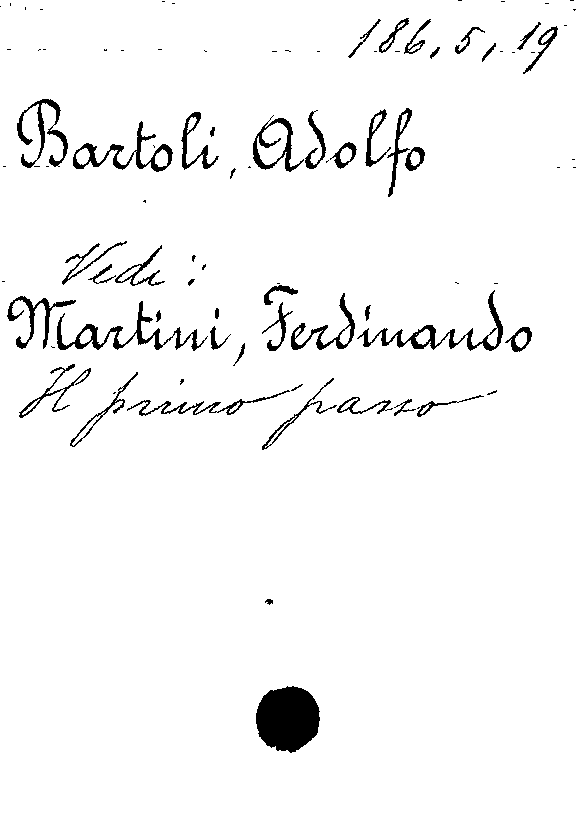 186,5,19
Bartoli, Adolfo
Vedi:
Martini, Ferdinando
Il primo passo